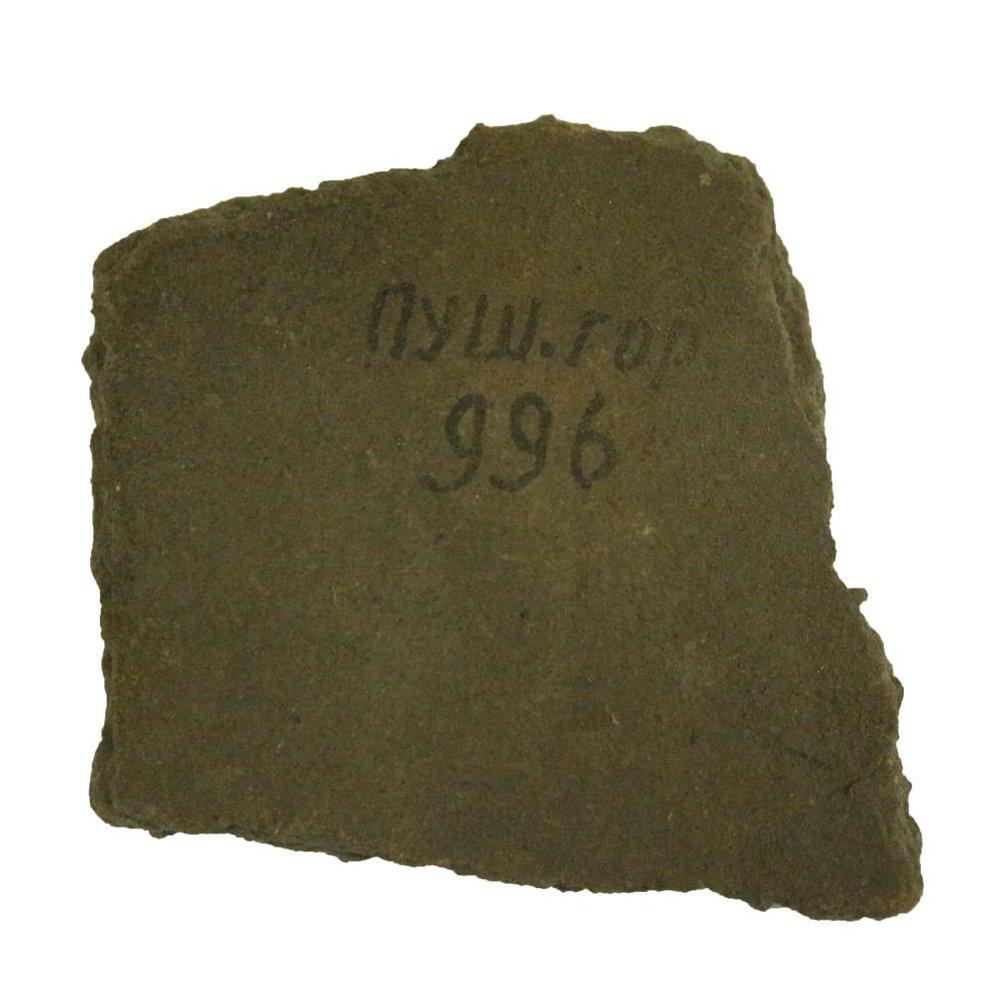 ПУШ.гор
996